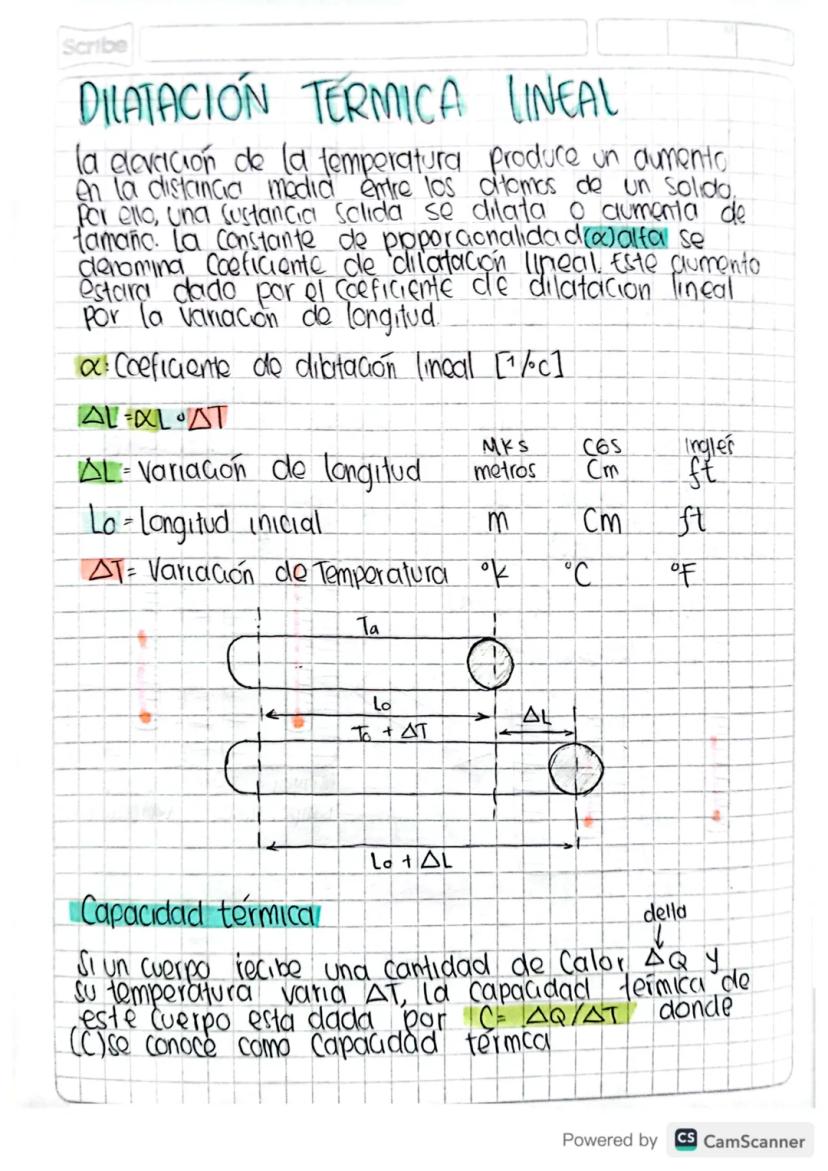 Scribe
DILATACIÓN TÉRMICA LINEAL
La elevación de la temperatura produce un aumento
en la distancia media entre los átomos de un solido.
Por ello, una sustancia solida se dilata o aumenta de
tamaño. La constante de proporcionalidad (α) alfa se
denomina Coeficiente de dilatación lineal. Este aumento
estara dado por el coeficiente de dilatacion lineal
por la variacón de longitud.
α: Coeficiente de dilatación lineal [1/°c]
ΔL=αL∘ΔT
MKS CGS Inglés
ΔL= Variación de longitud metros Cm ft
Lo = longitud inicial m Cm ft
ΔT= Variación de Temperatura °k °C °F
Ta
Lo
ΔL
To + ΔT
Lo + ΔL
Capacidad térmica
della
Si un cuerpo recibe una cantidad de Calor ΔQ y
su temperatura varia ΔT, la capacidad térmica de
este cuerpo esta dada por C= ΔQ/ΔT donde
(C) se conoce como Capacidad térmca
Powered by CS CamScanner